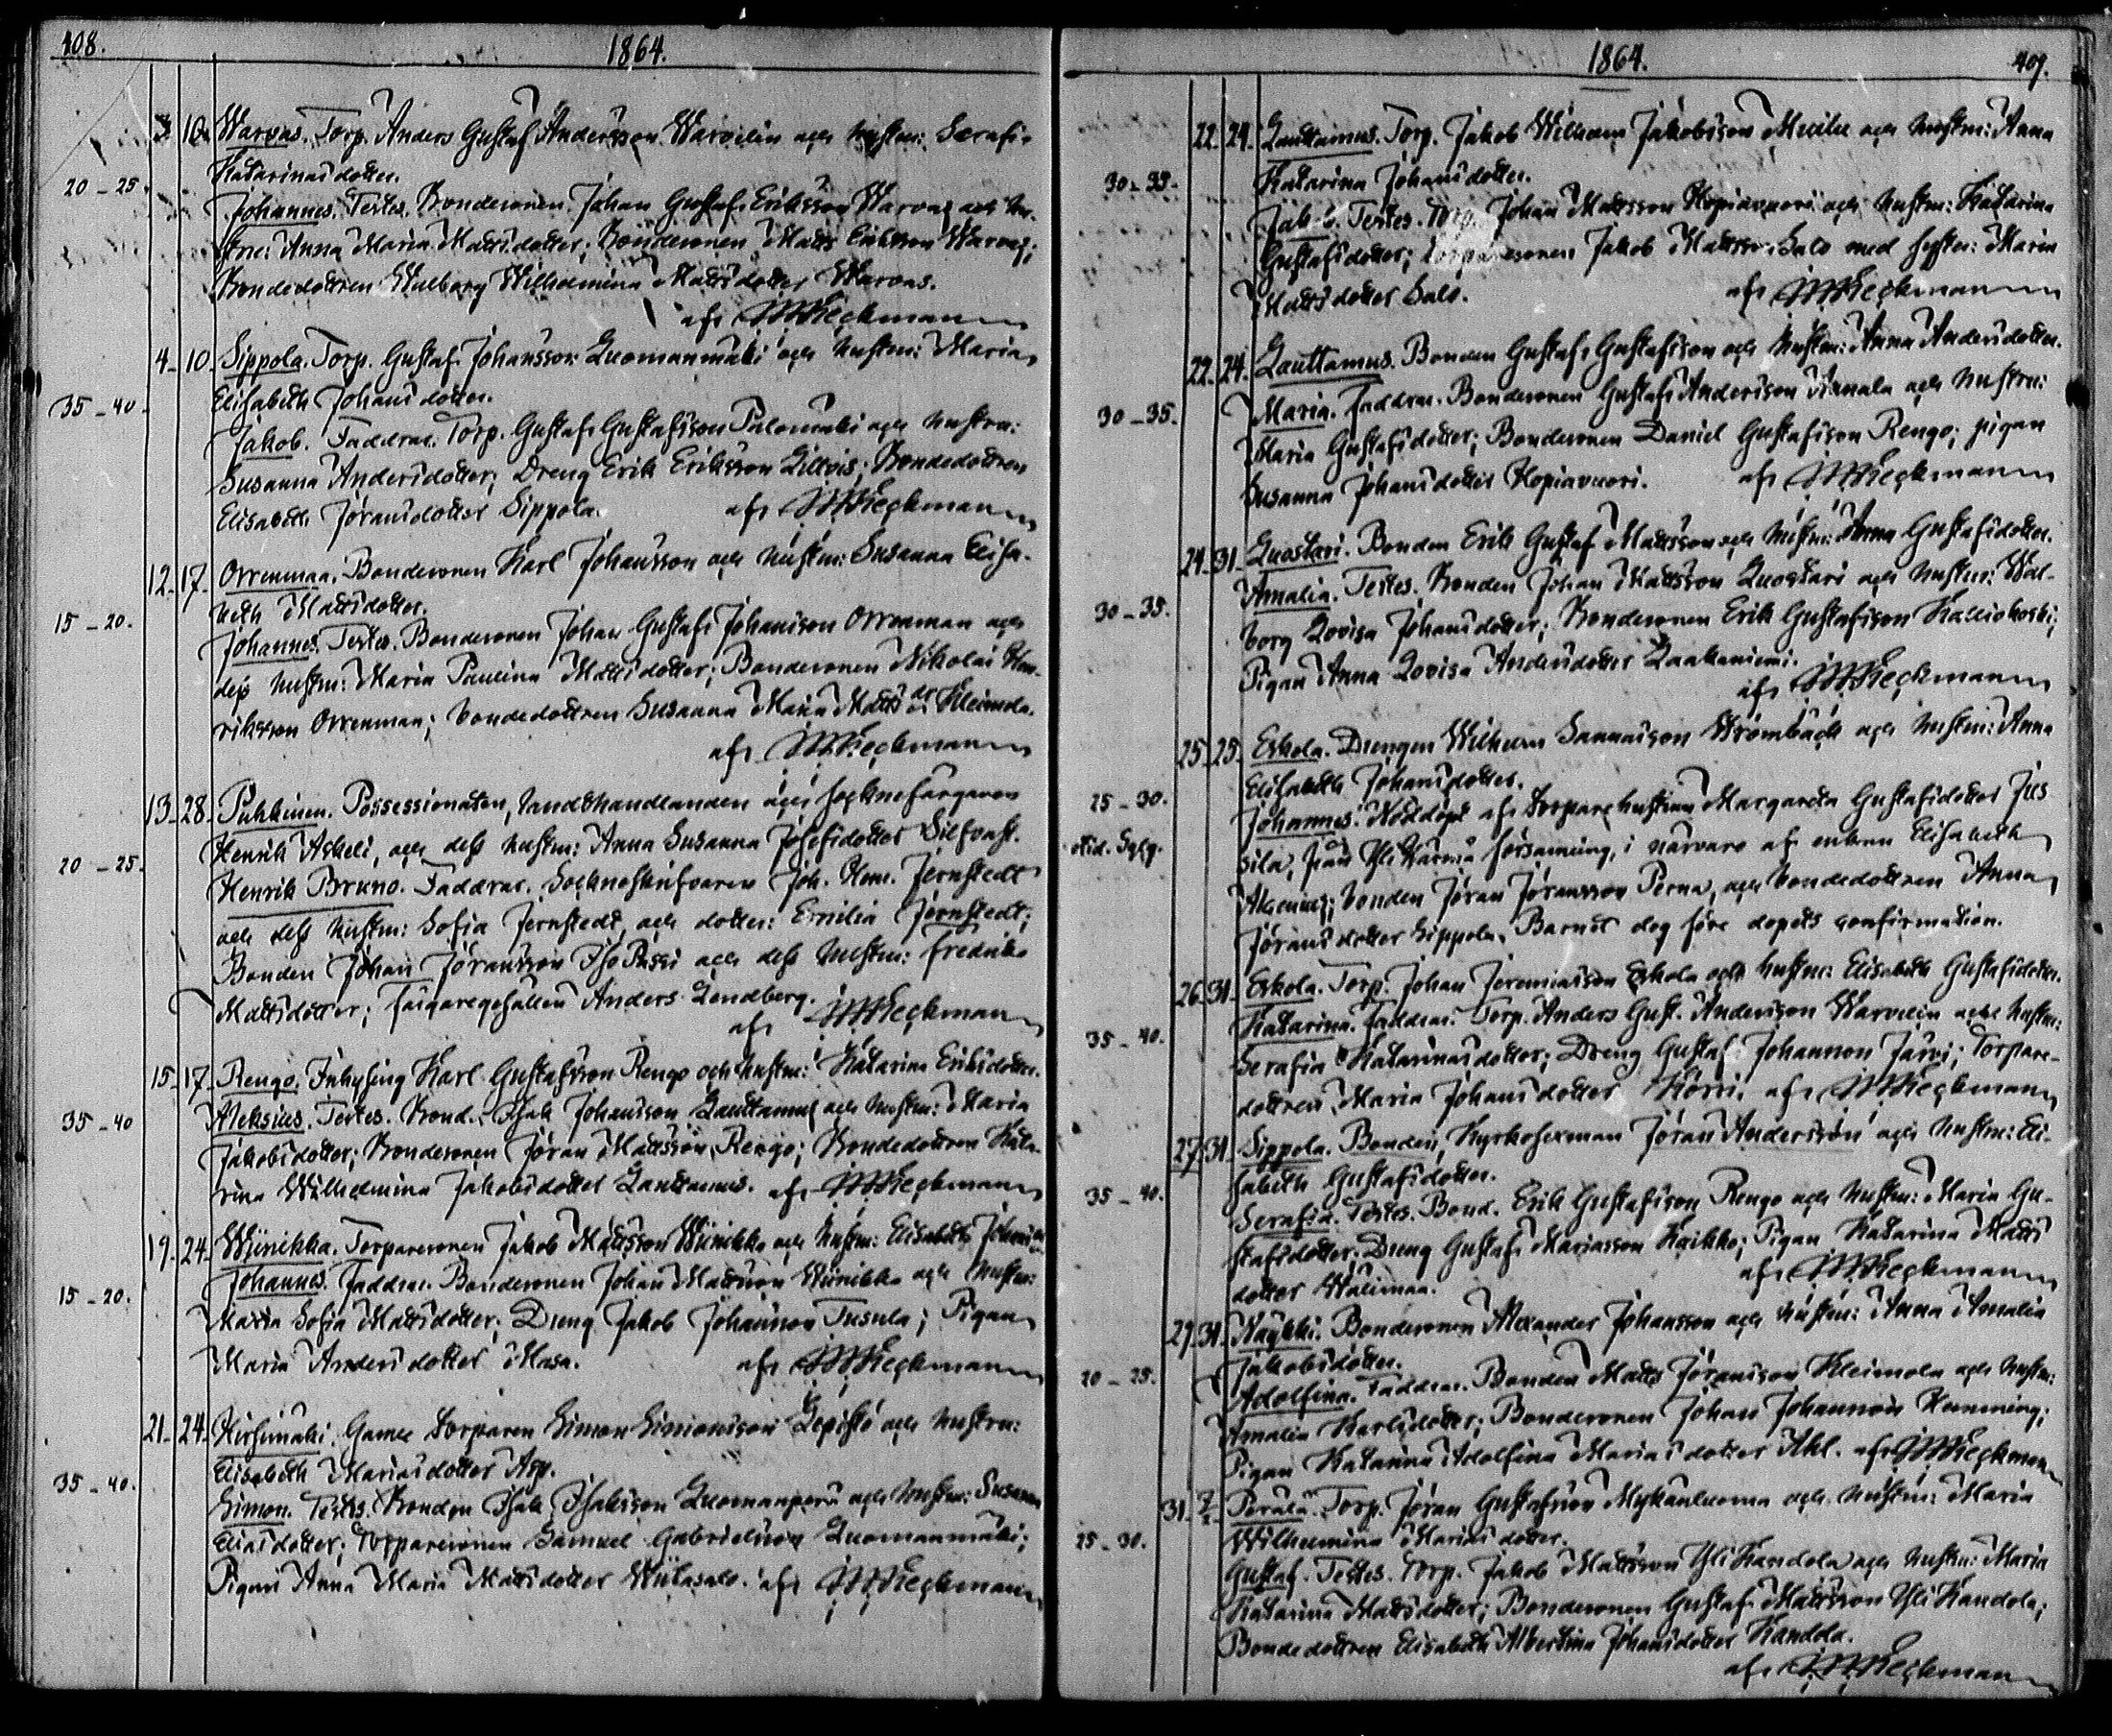 408.
1864.
3. 10. Warvas. Torp. Anders Gustaf Andersson Warvelin och hustru: Serafi-
Katarinas dotter.
20 - 25.
Johannes. Testes. Bondesonen Johan Gustaf Eriksson Warvas och hu-
stru: Anna Maria Mattsdotter; Bondesonen Matts Eriksson Warvas;
Bondedottren Walborg Wilhelmina Mattsdotter Warvas.
af J W Keckman
4. 10. Sippola. Torp. Gustaf Johansson Luomanmäki och hustru: Maria
Elisabeth Johansdotter.
35 - 40.
Jakob. Faddrar. Torp. Gustaf Gustafsson Palomäki och hustru:
Susanna Andersdotter; Dreng Erik Eriksson; Bondedottren
Elisabeth Jöransdotter Sippola.
af Keckman
12. 17. Orrenmaa. Bondesonen Karl Johansson och hustru: Susanna Elisa-
beth Mattsdotter.
15 - 20.
Johannes. Testes. Bondesonen Johan Gustaf Johansson Orrenmaa och
dess hustru: Maria Paulina Mattsdotter; Bondesonen Nikolai Hen-
riksson Orrenmaa; bondedottren Susanna Maria Matts dr Kleimola.
af Keckman
13. 28. Puhkinen. Possessionaten, landthandlanden och socknefärgaren
Henrik Askeli, och dess hustru: Anna Susanna Josefsdotter Silfvast.
20 - 25.
Henrik Bruno. Faddrar. Socknoskrifvaren Joh. Henr. Jernstedt
och dess hustru: Sofia Jernstedt, och dotter: Emilia Jernstedt;
Bonden Johan Jöransson Iso Passi och dess hustru: Fredrika
Mattsdotter; färgaregesällen Anders Lendberg.
af Keckman
15. 17. Rengo. Inhysing Karl Gustafsson Rengo och hustru: Katarina Eriksdotter.
35 - 40
Aleksius. Testes. Bond. Isak Johansson Lauttamus och hustru: Maria
Jakobsdotter; Bondesonen Jöran Mattsson Rengo; Bondedottren Kata-
rina Wilhelmina Jakobsdotter Lauttamus. af Keckman
19. 24. Wiinikka. Torparesonen Jakob Mattsson Wiinikka och hustru: Elisabeth
15 - 20.
Johannes. Faddrar. Bondesonen Johan Mattsson Wiinikka och hustru:
Maria Sofia Mattsdotter; Dreng Jakob Johansson Tusula; Pigan
Maria Andersdotter Masa.
af Keckman
21. 24. Hirsimäki. Gamle torparen Simon Simonsson Lepistö och hustru:
Elisabeth Mariasdotter Asp.
35 - 40.
Simon. Testes. Bonden Isak Isaksson Luomanperä och hustru: Susanna
Eliasdotter; Torparesonen Samuel Gabrielsson Luomanmäki;
Pigan Anna Maria Mattsdotter Wiitasalo. af Keckman
1864.
409.
22. 24. Lauttamus. Torp. Jakob Wilhelm Jakobsson och hustru: Anna
Katarina Johansdotter.
30 - 35.
Jakob. Testes. Torp. Johan Mattsson Kopiavuori och hustru: Katarina
Gustafsdotter; Torparesonen Jakob Mattsson Salo med syster: Maria
Mattsdotter Salo.
af Keckman
22. 24. Lauttamus. Bonden Gustaf Gustafsson och hustru: Anna Andersdotter.
30 - 35.
Maria. Faddrar. Bondesonen Gustaf Andersson Annala och hustru:
Maria Gustafsdotter; Bondesonen Daniel Gustafsson Rengo; pigan
Susanna Johansdotter Kopiavuori.
af Keckman
24. 31. Luostari. Bonden Erik Gustaf Mattsson och hustru: Anna Gustafsdotter.
30 - 35.
Amalia. Testes. Bonden Johan Mattsson Luostari och hustru: Wal-
borg Lovisa Johansdotter; Bondesonen Erik Gustafsson Kalliokoski;
Pigan Anna Lovisa Andersdotter Laakaniemi.
af Keckman
25. 25. Eskola. Drengen Wilhelm Sannasson Strömbäck och hustru: Anna
Elisabeth Johansdotter.
25 - 30.
Johannes. Nöddöpt af torparehustrun Margareta Gustafsdotter Jus
sila, från Yli Härmä församling, i närvaro af enkan Elisabeth
bonden Jöran Jöransson Perna, och bondedottren Anna
Jöransdotter Sippola. Barnet dog före dopets confirmation.
26. 31. Eskola. Torp. Johan Jeremiasson Eskola och hustru: Elisabeth Gustafsdotter.
35 - 40.
Katarina. Faddrar. Torp. Anders Gust. Andersson Warvelin och hustru:
Serafia Katarinasdotter; Dreng Gustaf Johansson Järvi; Torpare-
dottren Maria Johansdotter Körri. af Keckman
27. 31. Sippola. Bonden, Kyrkosexman Jöran Andersson och hustru: Eli-
sabeth Gustafsdotter.
35 - 40.
Serafia. Testes. Bond. Erik Gustafsson Rengo och hustru: Maria Gu-
stafsdotter; Dreng Gustaf Mariasson Kaikko; Pigan Katarina Matts
dotter Wälimaa.
af Keckman
29. 31. Näykki. Bondesonen Alexander Johansson och hustru: Anna Amalia
Jakobsdotter.
20 - 25.
Adolfina. Faddrar. Bonden Matts Jöransson Kleimola och hustru:
Amalia Karlsdotter; Bondesonen Johan Johansson Hemming;
Pigan Katarina Adolfina Mariasdotter Ahl. af Keckman
31. 7/2. Perälä. Torp. Jöran Gustafsson Mykänluoma och hustru: Maria
Wilhelmina Mariasdotter.
25 - 30.
Gustaf. Testes. Torp. Jakob Mattsson Yli Kandola och hustru: Maria
Katarina Mattsdotter; Bondesonen Gustaf Mattsson Yli Kandola;
Bondedottren Elisabeth Albertina Johansdotter Kandola.
af Keckman